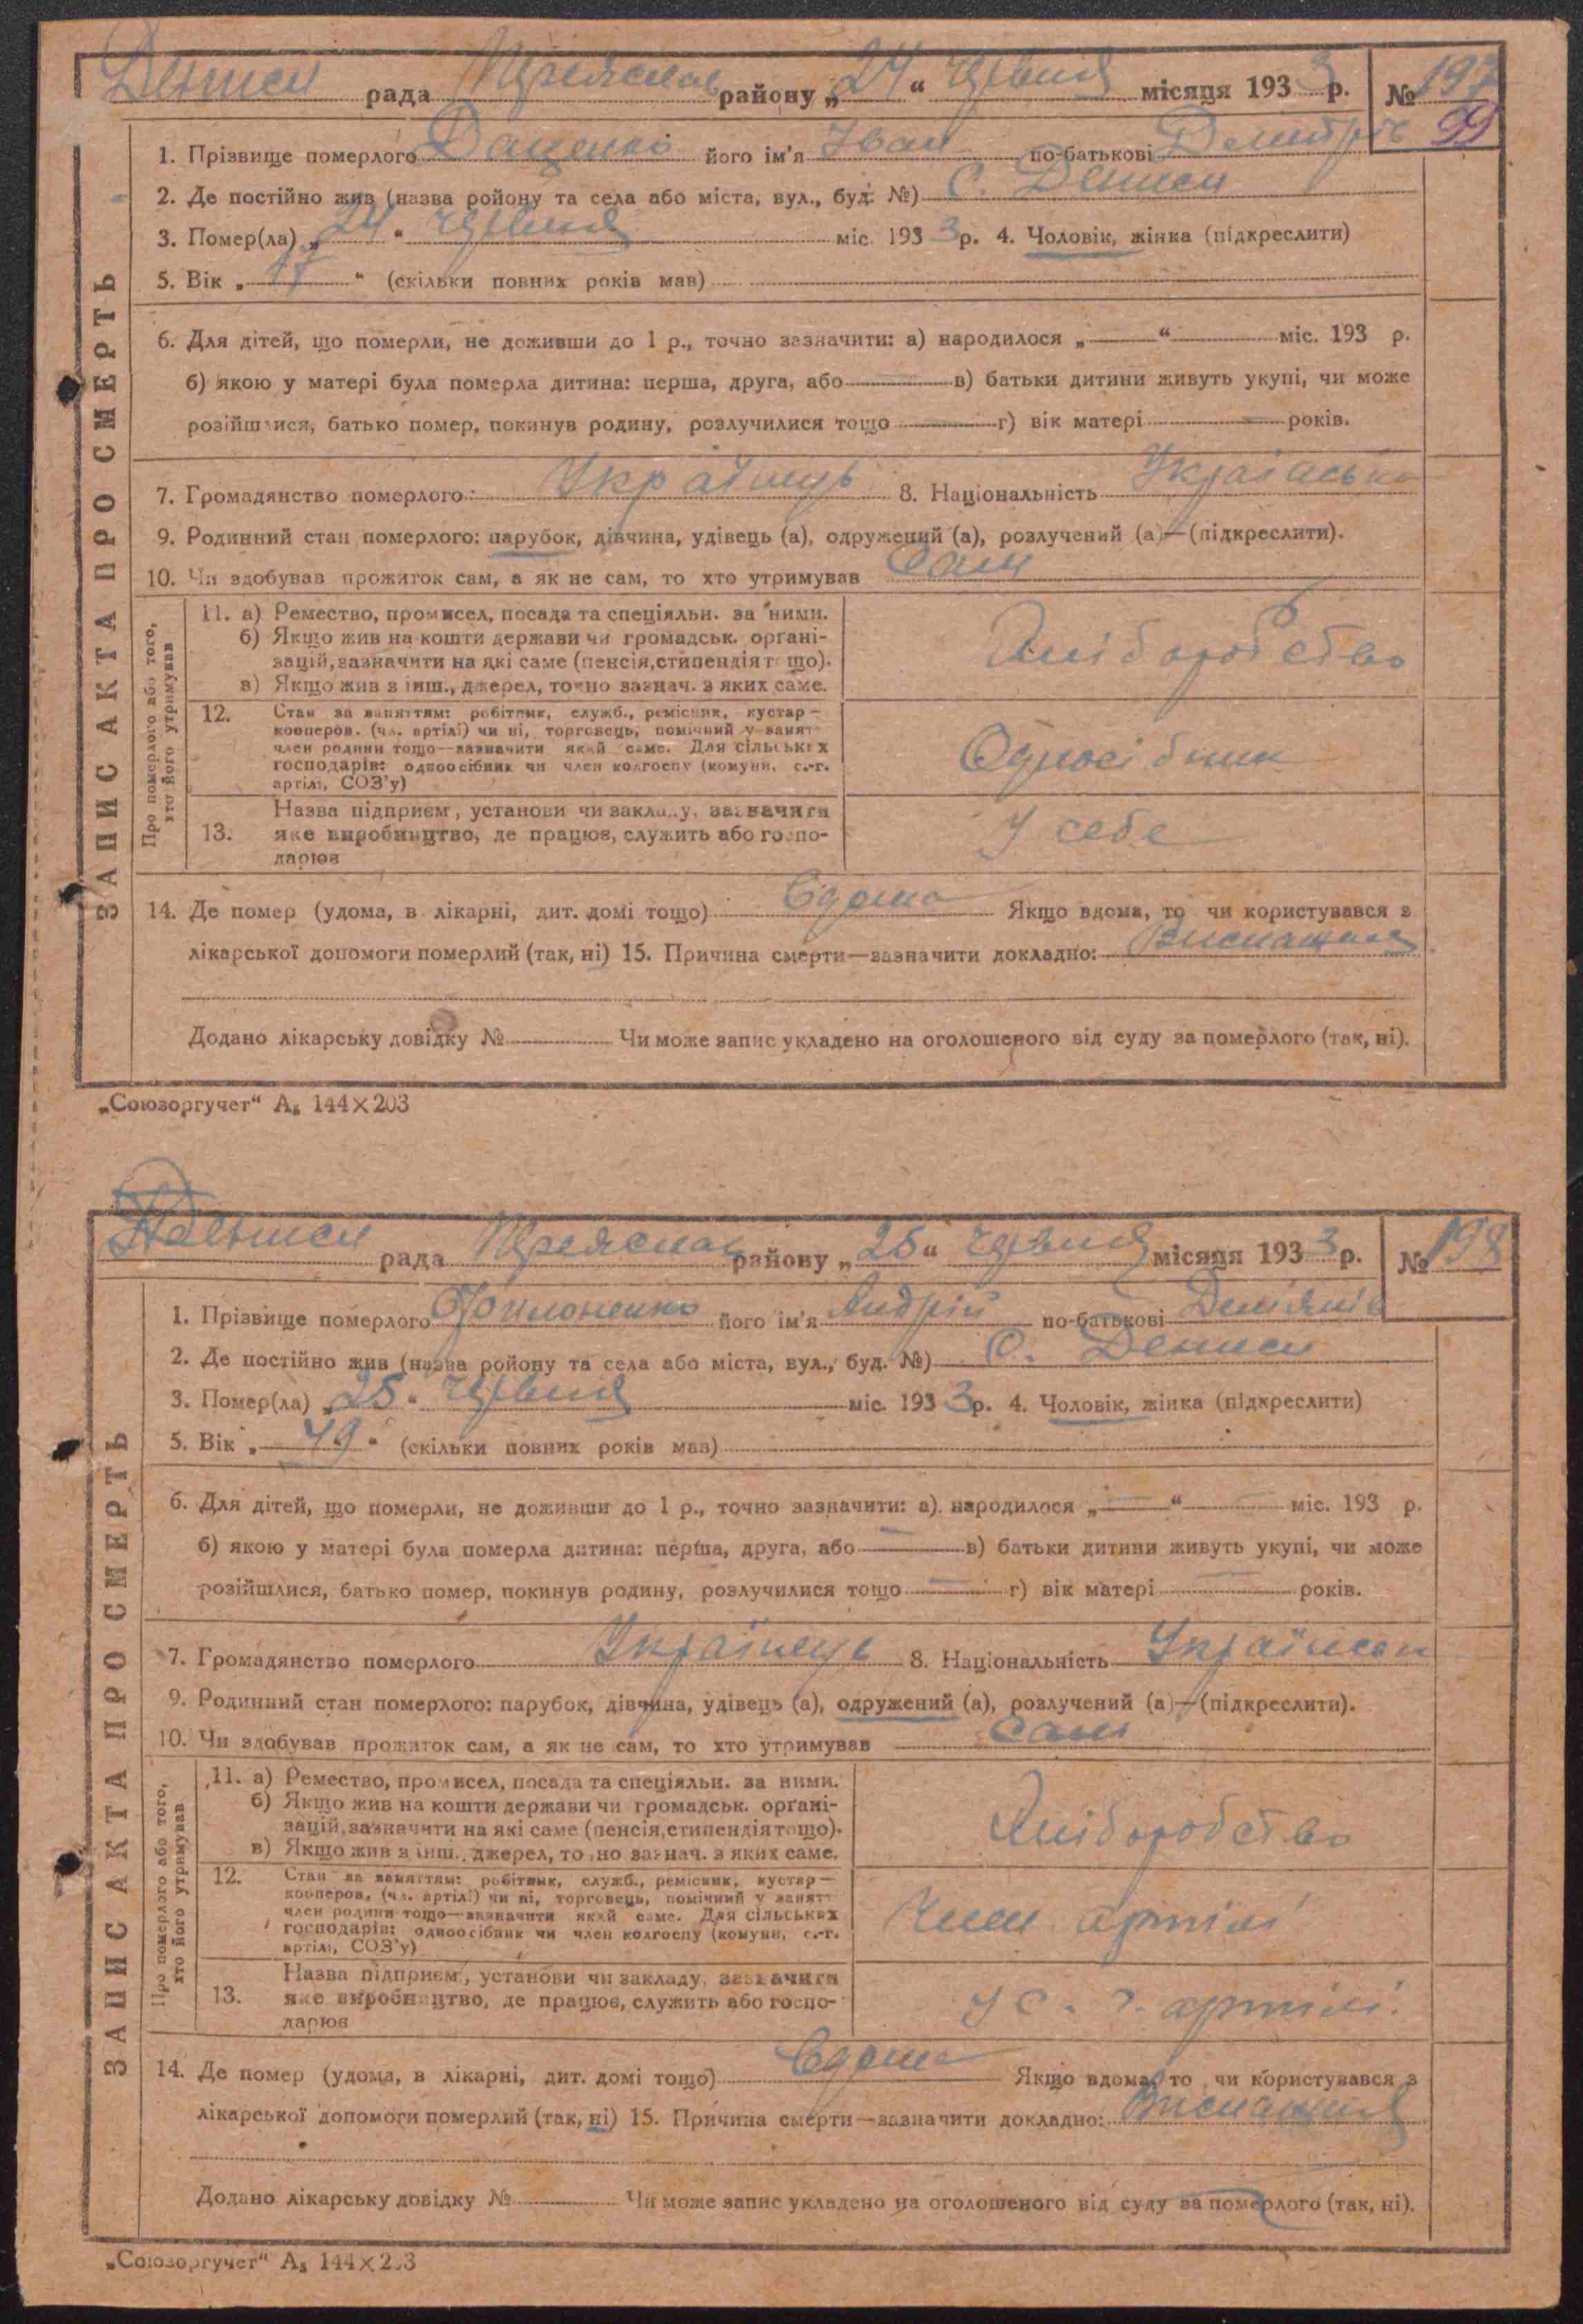 Дениси рада Переяслав району „24“ червня місяця 1933 р. № 197
99
ЗАПИС АКТА ПРО СМЕРТЬ
1. Прізвище померлого Даценко його ім'я Іван по-батькові
2. Де постійно жив (назва ройону та села або міста, вул., буд. №) С. Дениси
3. Помер(ла) „24“ червня міс. 1933 р. 4. Чоловік, жінка (підкреслити)
5. Вік „17“ (скільки повних років мав)
6. Для дітей, що померли, не доживши до 1 р., точно зазначити: а) народилося „ “ міс. 193 р.
б) якою у матері була померла дитина: перша, друга, або в) батьки дитини живуть укупі, чи може
розійшлися, батько помер, покинув родину, розлучилися тощо г) вік матері років.
7. Громадянство померлого: Українець 8. Національність Українська
9. Родинний стан померлого: парубок, дівчина, удівець (а), одружений (а), розлучений (а)—(підкреслити).
10. Чи здобував прожиток сам, а як не сам, то хто утримував Сам
Про померлого або того, хто його утримував
11. а) Ремество, промисел, посада та спеціяльн. за ними.
б) Якщо жив на кошти держави чи громадськ. орґані-
зацій, зазначити на які саме (пенсія, стипендія тощо).
в) Якщо жив з інш., джерел, точно зазнач. з яких саме.
Хліборобство
12. Стан за заняттям: робітник, служб., ремісник, кустар—
кооперов. (чл. артілі) чи ні, торговець, помічний у занят-
член родини тощо—зазначити який саме. Для сільських
господарів: одноосібник чи член колгоспу (комуни, с.-г.
артілі, СОЗ'у)
Одноосібник
13. Назва підприєм., установи чи закладу, зазначити
яке виробництво, де працює, служить або госпо-
дарює
У себе
14. Де помер (удома, в лікарні, дит. домі тощо) Вдома Якщо вдома, то чи користувався з
лікарської допомоги померлий (так, ні) 15. Причина смерти—зазначити докладно: Виснаження
Додано лікарську довідку № Чи може запис укладено на оголошеного від суду за померлого (так, ні).
„Союзоргучет“ А₅ 144×203
Дениси рада Переяслав району „25“ червня місяця 1933 р. № 198
ЗАПИС АКТА ПРО СМЕРТЬ
1. Прізвище померлого його ім'я Андрій по-батькові
2. Де постійно жив (назва ройону та села або міста, вул., буд. №) С. Дениси
3. Помер(ла) „25“ червня міс. 1933 р. 4. Чоловік, жінка (підкреслити)
5. Вік „49“ (скільки повних років мав)
6. Для дітей, що померли, не доживши до 1 р., точно зазначити: а) народилося „ “ міс. 193 р.
б) якою у матері була померла дитина: перша, друга, або в) батьки дитини живуть укупі, чи може
розійшлися, батько помер, покинув родину, розлучилися тощо г) вік матері років.
7. Громадянство померлого Українець 8. Національність
9. Родинний стан померлого: парубок, дівчина, удівець (а), одружений (а), розлучений (а)—(підкреслити).
10. Чи здобував прожиток сам, а як не сам, то хто утримував Сам
Про померлого або того, хто його утримував
11. а) Ремество, промисел, посада та спеціяльн. за ними.
б) Якщо жив на кошти держави чи громадськ. орґані-
зацій, зазначити на які саме (пенсія, стипендія тощо).
в) Якщо жив з інш., джерел, точно зазнач. з яких саме.
Хліборобство
12. Стан за заняттям: робітник, служб., ремісник, кустар—
кооперов. (чл. артілі) чи ні, торговець, помічний у занятт-
член родини тощо—зазначити який саме. Для сільських
господарів: одноосібник чи член колгоспу (комуни, с.-г.
артілі, СОЗ'у)
Член артілі
13. Назва підприєм., установи чи закладу, зазначити
яке виробництво, де працює, служить або госпо-
дарює
У с. г. артілі.
14. Де помер (удома, в лікарні, дит. домі тощо) Вдома Якщо вдома, то чи користувався з
лікарської допомоги померлий (так, ні) 15. Причина смерти—зазначити докладно: Виснаження
Додано лікарську довідку № Чи може запис укладено на оголошеного від суду за померлого (так, ні).
„Союзоргучет“ А₅ 144×203